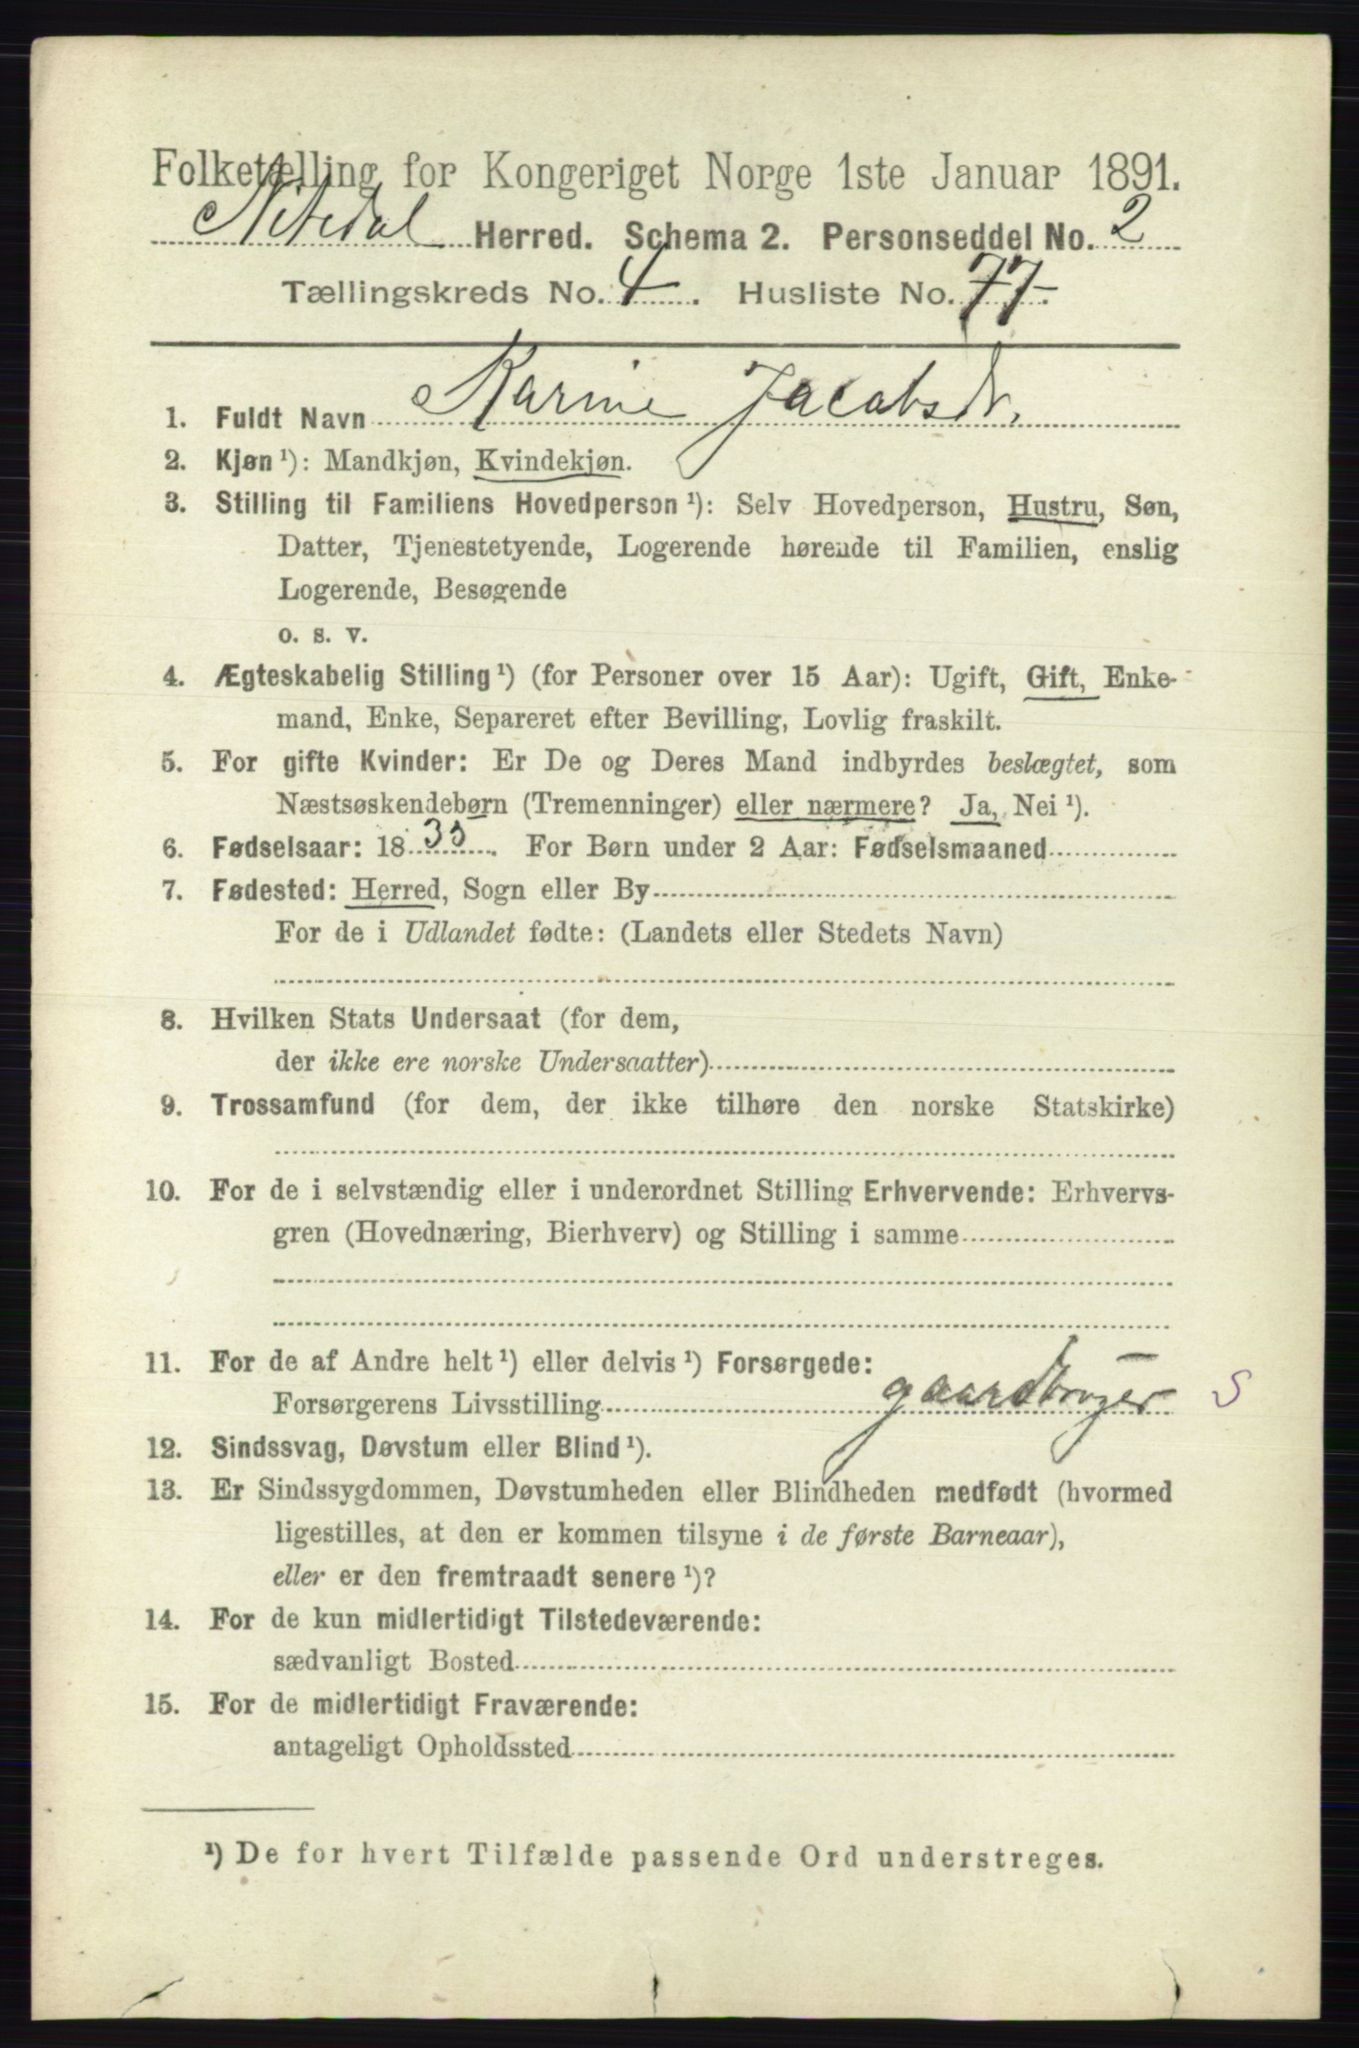 Folketælling for Kongeriget Norge 1ste Januar 1891.
Nitedal Herred. Schema 2. Personseddel No. 2
Tællingskreds No. 4. Husliste No. 77.
1. Fuldt Navn Karine Jacobsdr.
2. Kjøn ¹): Mandkjøn, Kvindekjøn.
3. Stilling til Familiens Hovedperson ¹): Selv Hovedperson, Hustru, Søn,
Datter, Tjenestetyende, Logerende hørende til Familien, enslig
Logerende, Besøgende
o. s. v.
4. Ægteskabelig Stilling ¹) (for Personer over 15 Aar): Ugift, Gift, Enke-
mand, Enke, Separeret efter Bevilling, Lovlig fraskilt.
5. For gifte Kvinder: Er De og Deres Mand indbyrdes beslægtet, som
Næstsøskendebørn (Tremenninger) eller nærmere? Ja, Nei ¹).
6. Fødselsaar: 1835. For Børn under 2 Aar: Fødselsmaaned
7. Fødested: Herred, Sogn eller By
For de i Udlandet fødte: (Landets eller Stedets Navn)
8. Hvilken Stats Undersaat (for dem,
der ikke ere norske Undersaatter)
9. Trossamfund (for dem, der ikke tilhøre den norske Statskirke)
10. For de i selvstændig eller i underordnet Stilling Erhvervende: Erhvervs-
gren (Hovednæring, Bierhverv) og Stilling i samme
11. For de af Andre helt ¹) eller delvis ¹) Forsørgede:
Forsørgerens Livsstilling gaardbruger S
12. Sindssvag, Døvstum eller Blind ¹).
13. Er Sindssygdommen, Døvstumheden eller Blindheden medfødt (hvormed
ligestilles, at den er kommen tilsyne i de første Barneaar),
eller er den fremtraadt senere ¹)?
14. For de kun midlertidigt Tilstedeværende:
sædvanligt Bosted
15. For de midlertidigt Fraværende:
antageligt Opholdssted
¹) De for hvert Tilfælde passende Ord understreges.